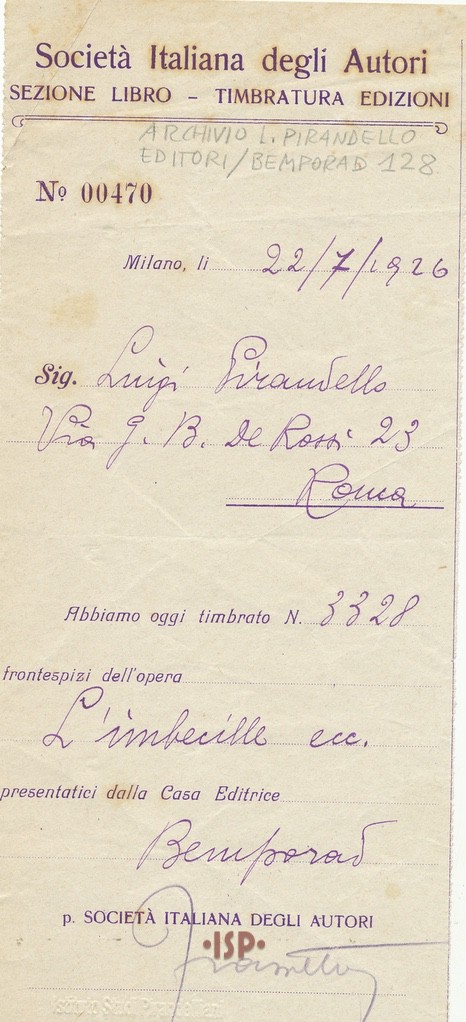 Società Italiana degli Autori
SEZIONE LIBRO – TIMBRATURA EDIZIONI
ARCHIVIO L. PIRANDELLO
EDITORI/BEMPORAD 128
Nº 00470
Milano, li 22/7/1926
Sig. Luigi Pirandello
Via G. B. De Rossi 23
Roma
Abbiamo oggi timbrato N. 3328
frontespizi dell'opera
L'imbecille ecc.
presentatici dalla Casa Editrice
Bemporad
p. SOCIETÀ ITALIANA DEGLI AUTORI
·ISP·